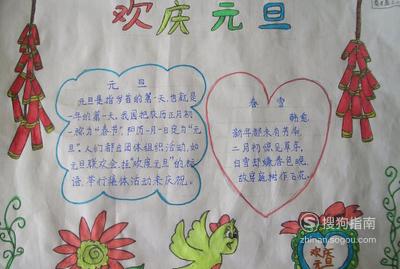 欢庆元旦
元旦
元旦是指岁首的第一天,也就是
一年的第一天,我国把农历正月初
一称为“春节”,阳历一月一日定为“元
旦”。人们都组团体组织活动,如
元旦联欢会,挂“欢度元旦”的标
语,举行集体活动来庆祝。
春雪
韩愈
新年都未有芳华,
二月初惊见草芽。
白雪却嫌春色晚,
故穿庭树作飞花。
欢庆
元旦
搜狗指南
zhinan.sogou.com